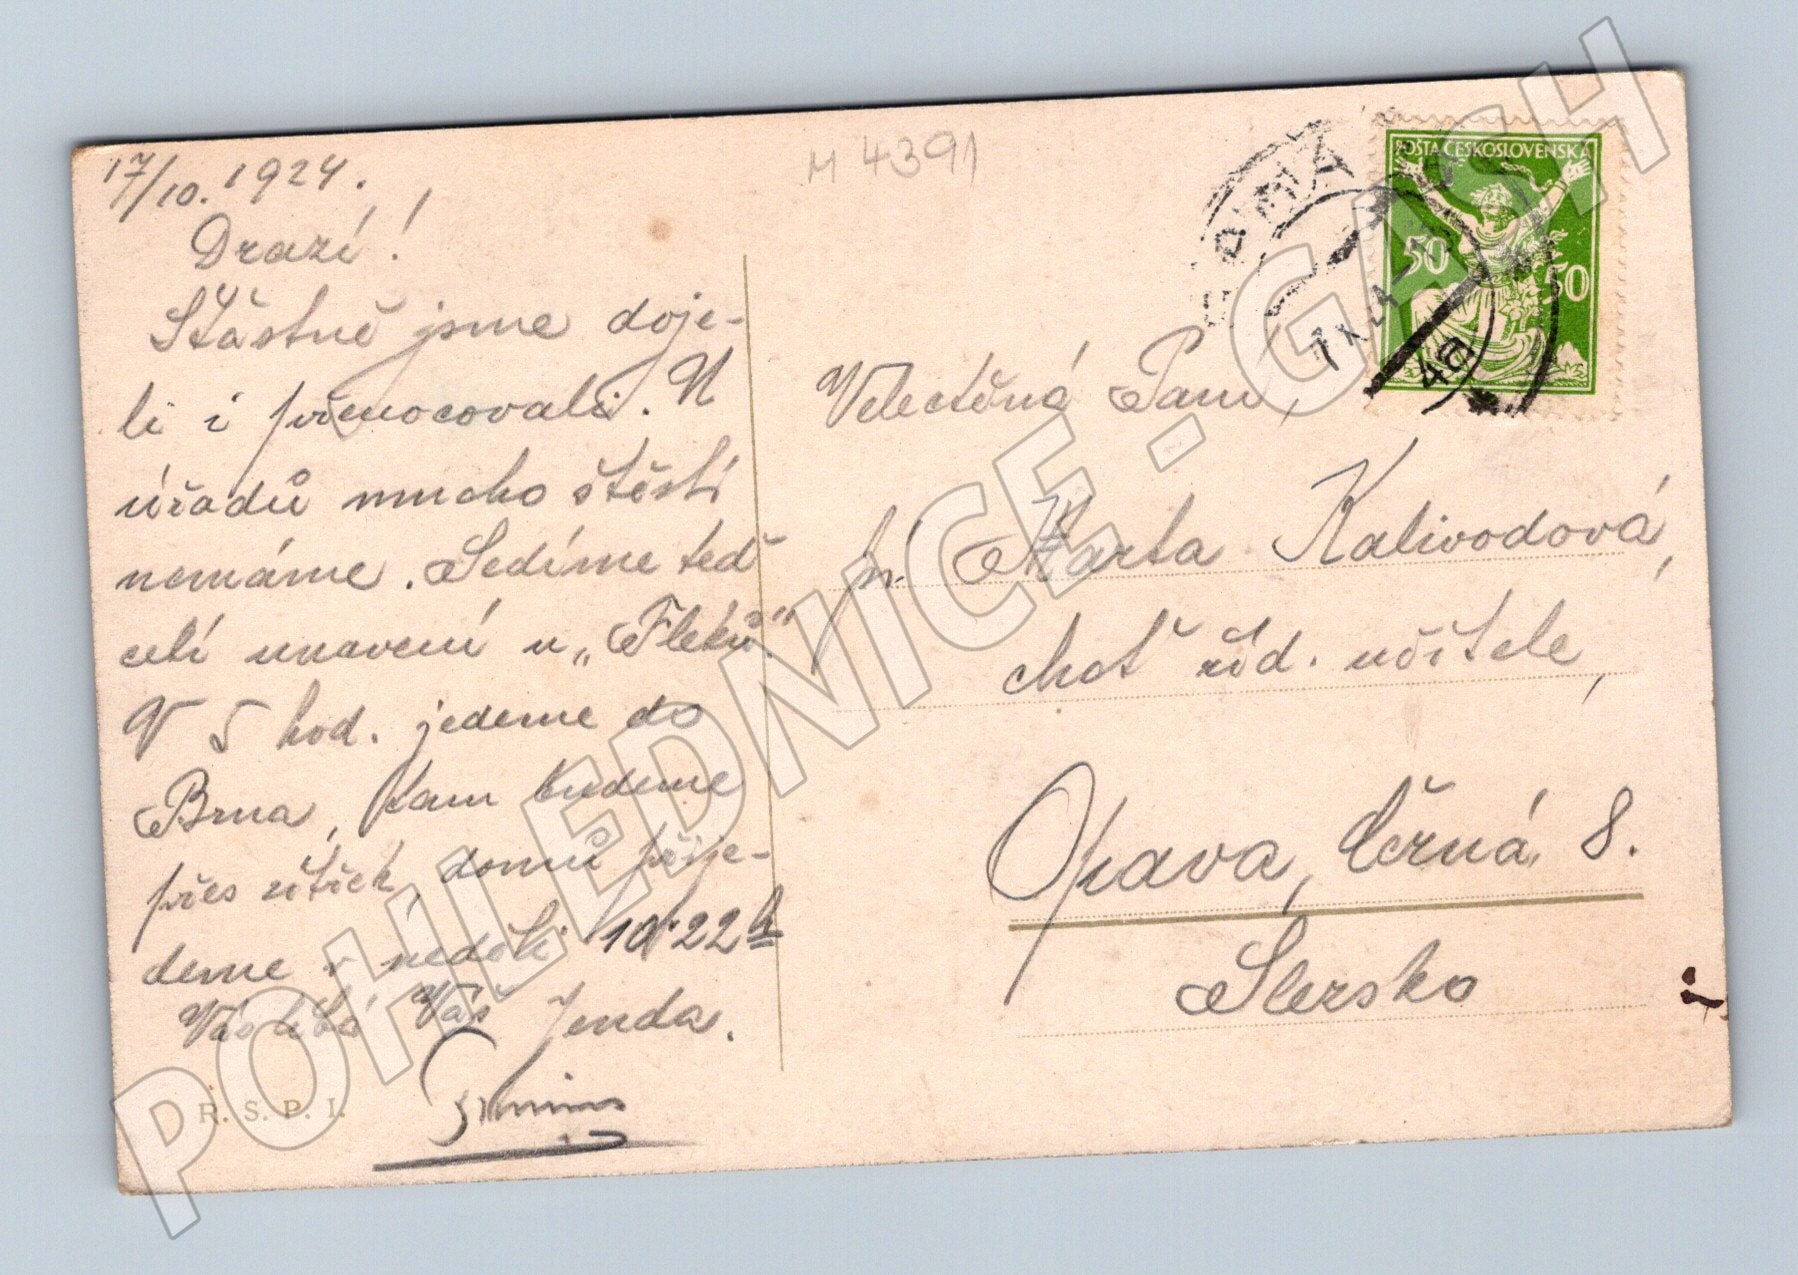 M 4391
17/10. 1924.
Drazí!
Šťastně jsme doje-
li i přenocovali. U
úřadů mnoho štěstí
nemáme. Sedíme teď
celí unavení u „Fleků."
V 5 hod. jedeme do
Brna, kam budeme
přes úterek, domů přije-
deme v neděli 10·22 h
Vás líbá Váš Jenda.
Ř. S. P. I.
POŠTA ČESKOSLOVENSKÁ
50 50
4a
Velectěná Paní,
Marta Kalivodová,
choť říd. učitele,
Opava, Černá 8.
Slezsko
POHLEDNICE - GASH